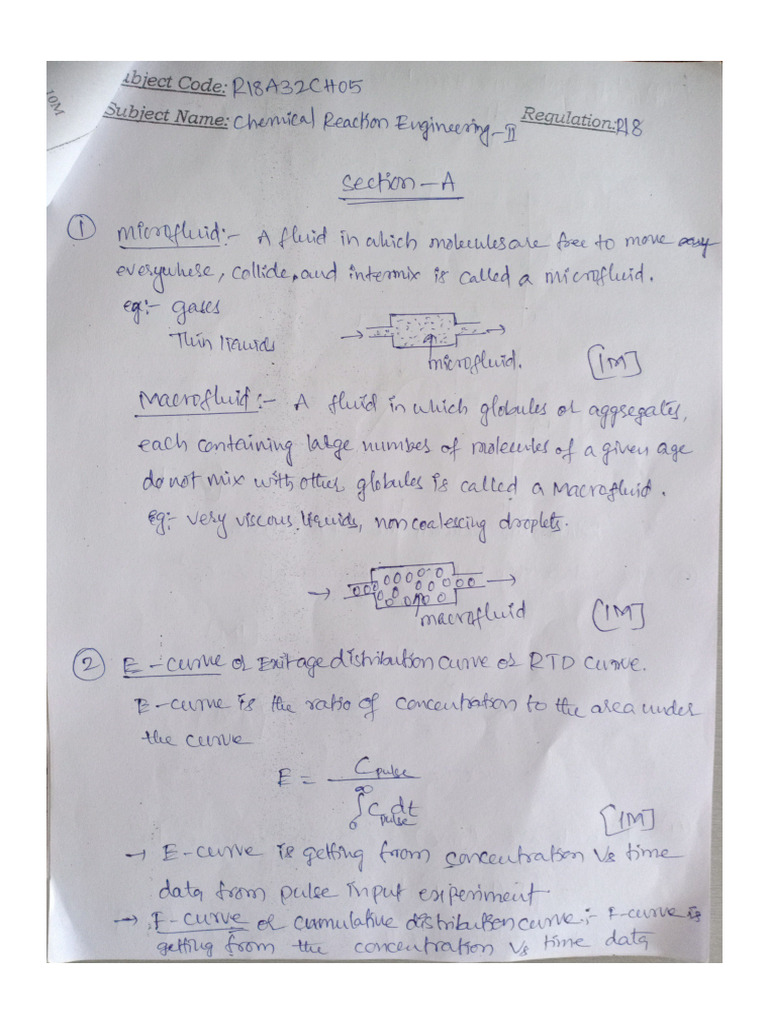 10M
ubject Code: R18A32CH05
Subject Name: Chemical Reaction Engineering-II Regulation: R18
Section-A
① Microfluid:- A fluid in which molecules are free to move
everywhere, collide, and intermix is called a microfluid.
eg:- gases
Thin liquids
microfluid. [1M]
Macrofluid:- A fluid in which globules or aggregates,
each containing large number of molecules of a given age
do not mix with other globules is called a Macrofluid.
eg:- very viscous liquids, non coalescing droplets.
macrofluid [1M]
② E-curve or Exit age distribution curve or RTD curve.
E-curve is the ratio of concentration to the area under
the curve
E = Cpulse / ∫₀^∞ Cpulse dt
[1M]
→ E-curve is getting from concentration Vs time
data from pulse input experiment
→ F-curve or cumulative distribution curve:- F-curve is
getting from the concentration Vs time data